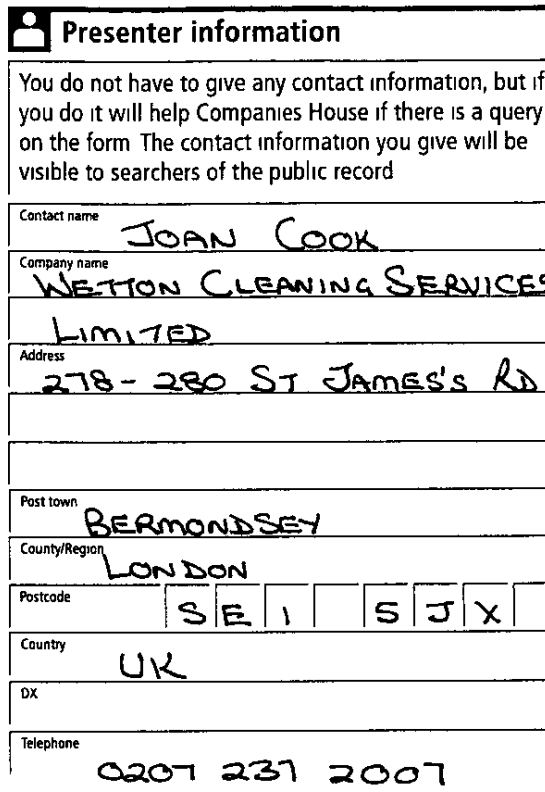 Presenter information
You do not have to give any contact information, but if
you do it will help Companies House if there is a query
on the form The contact information you give will be
visible to searchers of the public record
Contact name
JOAN COOK
Company name
WETTON CLEANING SERVICES
LIMITED
Address
278-280 ST JAMES'S RD
Post town
BERMONDSEY
County/Region
LONDON
Postcode
SE1 5JX
Country
UK
DX
Telephone
0207 237 2007